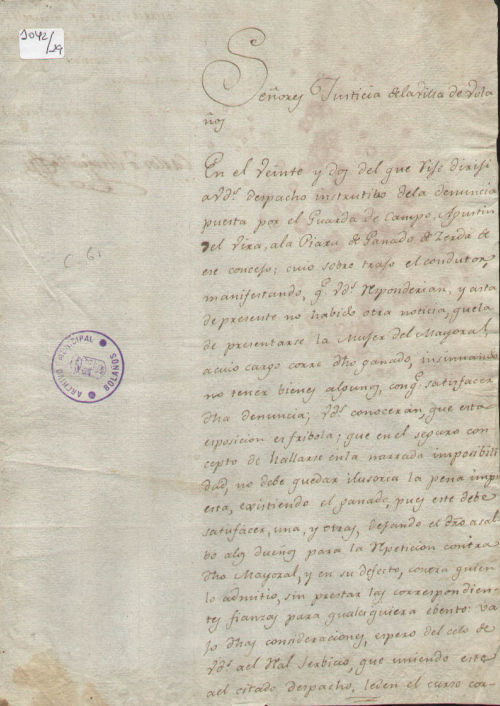 1042/29
Señores Justicia de la Villa de Vola
ños
En el Veinte y dos del que Vije dirijí
a Vds. despacho instrutibo dela denuncia
puesta por el Guarda de Campo, Agustin
del Vira, ala Piara de Ganado de Zerda de
ese concejo; cuio sobre trajo el condutor,
manifestando, q.e Vds. Responderian, y asta
de presente no habido otra noticia, quela
de presentarse la Mujer del Mayoral,
acuio cargo corre dho ganado, insinuando
no tener bienes algunos, con q.e satisfacer
dha denuncia; Vds. conoceran, que esta
esposicion es fribola; que en el seguro con
cepto de hallarse enla narrada imposibili
dad, no debe quedar ilusoria la pena impu
esta, existiendo el ganado, pues este debe
satisfacer, una, y otras, dejando el dro asal
bo alos dueños para la Repeticion contra
dho Mayoral, y en su defecto, contra quien
lo admitio, sin prestar las correspondien
tes fianzas para qualesquiera ebento: va
jo dhas consideraciones, espero del celo de
Vds. ael Real Serbicio, que uniendo este
ael citado despacho, leden el curso cor-
C 61
ARCHIVO MUNICIPAL
BOLAÑOS